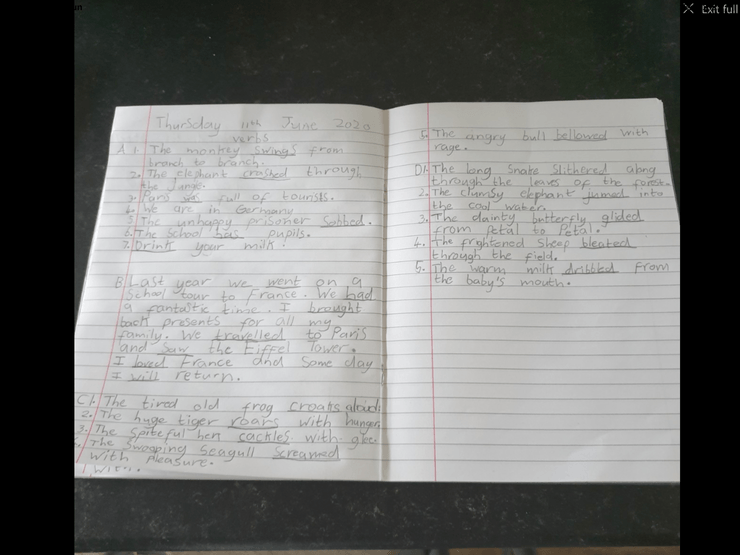 Exit full
Thursday 11th June 2020
verbs
A 1. The monkey swings from
branch to branch.
2. The elephant crashed through
the jungle.
3. Paris was full of tourists.
4. We are in Germany
5. The unhappy prisoner sobbed.
6. The School has pupils.
7. Drink your milk.
B. Last year we went on a
School tour to France. We had
a fantastic time. I brought
back presents for all my
family. We travelled to Paris
and saw the Eiffel tower.
I loved France and some day
I will return.
C1. The tired old frog croaks aloud
2. The huge tiger roars with hunger
3. The Spiteful hen cackles with glee.
The swooping seagull screamed
with pleasure.
5. The angry bull bellowed with
rage.
D1. The long snake slithered along
through the leaves of the forest.
2. The clumsy elephant into
the cool water.
3. The dainty butterfly glided
from petal to Petal.
4. The frightened sheep bleated
through the field.
5. The warm milk dribbled from
the baby's mouth.